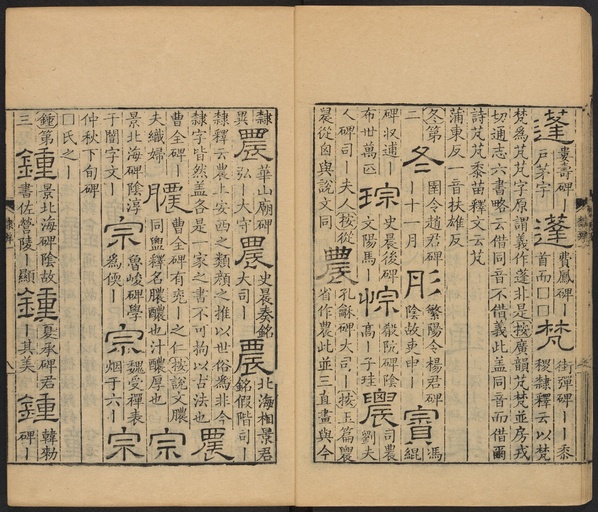 蓬 婁壽碑｜戶茅字 蓬 費鳳碑｜首而□□ 梵 街彈碑｜黍稷隸釋云以梵
梵爲芃芃字原謂義作蓬非是按廣韻芃梵並房戎
切通志六書略云借同音不借義此蓋同音而借爾
詩芃芃黍苗釋文云芃
蒲東反一音扶雄反
冬第二 冬 圉令趙君碑｜十一月 肜 繁陽令楊君碑陰故吏申｜ 賨 馮緄
碑収逋｜布世萬匹 琮 史晨後碑文陽馬｜ 悰 殽阬碑陰高｜子珪 農 司農劉夫
人碑司｜夫人按從 農 孔龢碑大司｜按玉篇農
晨從囟與說文同 省作農此並三直畫與今
隸異 農 華山廟碑弘｜太守 農 史晨奏銘大司｜ 農 北海相景君銘假階司｜
隸釋云農上安西之類顏之推以世俗爲非今
隸字皆然蓋各是一家之書不可拘以古法也 農
曹全碑｜夫織婦 膿 曹全碑有兗｜之仁按說文膿同盥釋名膿醲也汁醲厚也 宗
景北海碑陰淳于闓字文｜ 宗 魯峻碑學爲傒｜ 宗 魏受禪表烟于六｜ 宗
仲秋下旬碑□氏之｜
鍾第三 鍾 景北海碑陰故書佐營陵｜顯 鍾 夏承碑君｜其美 鍾 韓勑碑｜